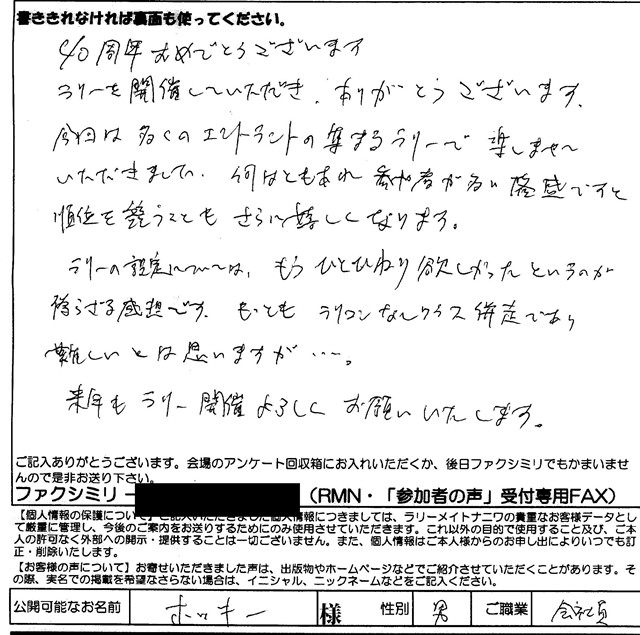 書ききれなければ裏面も使ってください。
40周年おめでとうございます
ラリーを開催していただき、ありがとうございます。
今回は多くのエントラントの集まるラリーで楽しませて
いただきました。何はともあれ参加者が多い盛盛ですと
順位を競うこともさらに嬉しくなります。
ラリーの設定については、もうひとひねり欲しかったというのが
偽らざる感想です。もっともラリコンなしクラス併走であり
難しいとは思いますが…。
来年もラリー開催よろしくお願いいたします。
ご記入ありがとうございます。会場のアンケート回収箱にお入れいただくか、後日ファクシミリでもかまいませ
んので是非お送り下さい。
ファクシミリ （RMN・「参加者の声」受付専用FAX）
【個人情報の保護について】ご記入いただきました個人情報につきましては、ラリーメイトナニワの貴重なお客様データとし
て厳重に管理し、今後のご案内をお送りするためにのみ使用させていただきます。これ以外の目的で使用すること及び、ご本
人の許可なく外部への開示・提供することは一切ございません。また、個人情報はご本人様からのお申し出によりいつでも訂
正・削除いたします。
【お客様の声について】お寄せいただきました声は、出版物やホームページなどでご紹介させていただくことがあります。そ
の際、実名での掲載を希望なさらない場合は、イニシャル、ニックネームなどをご記入ください。
公開可能なお名前 ホッキー 様 性別 男 ご職業 会社員